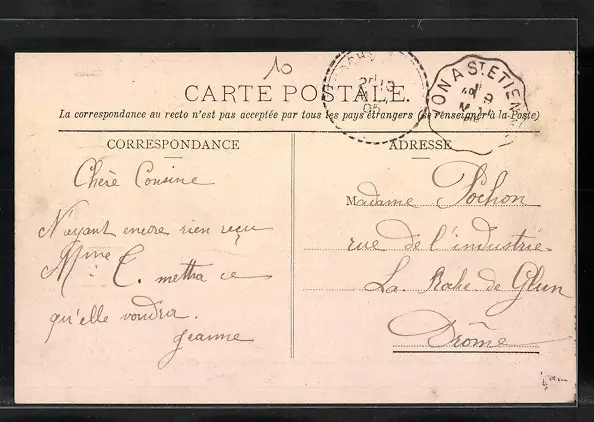 10
CARTE POSTALE.
La correspondance au recto n'est pas acceptée par tous les pays étrangers (Se renseigner à la Poste)
ON A ST ETIENNE
CORRESPONDANCE
ADRESSE
Chère Cousine
N'ayant encore rien reçu
Mme C. mettra ce
qu'elle voudra.
Jeanne
Madame Pochon
rue de l'industrie
La Roche de Glun
Drôme